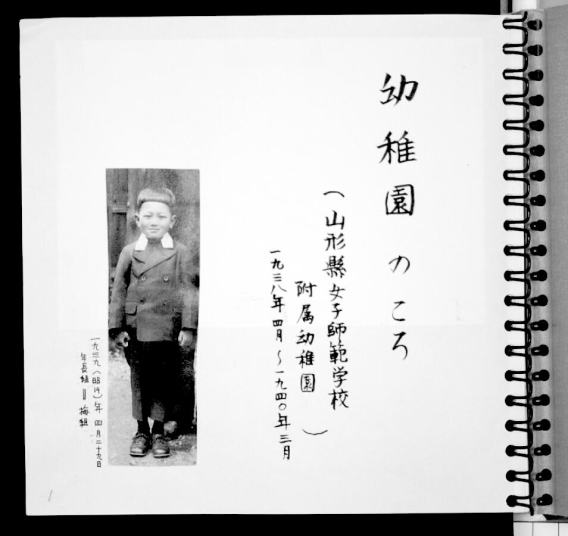 幼稚園のころ
(山形縣女子師範学校
附属幼稚園)
一九三八年四月~一九四〇年三月
一九三九(昭14)年四月二十九日
年長組=梅組
1